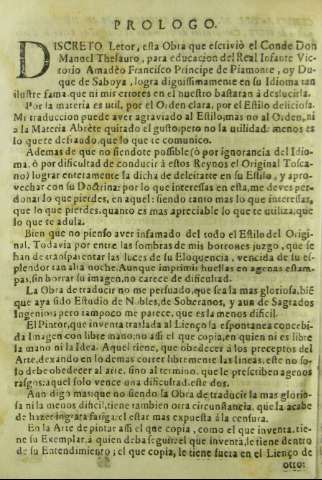 PROLOGO.
DISCRETO Letor, esta Obra que escrivió el Conde Don
Manoel Thesauro, para educacion del Real Infante Vic-
torio Amadèo Francisco Principe de Piamonte, oy Du-
que de Saboya, logra dignissimamente en su Idioma tan
ilustre fama que ni mis errores en el nuestro bastaran á deslucirla.
Por la materia es util, por el Orden clara, por el Estilo deliciosa.
Mi traduccion puede aver agraviado al Estilo, mas no al Orden, ni
a la Materia Abrète quitado el gusto, pero no la utilidad: menos es
lo que te defraudo, que lo que te comunico.
Ademas de que no siendote possible (ó por ignorancia del Idio-
ma, ó por dificultad de conducir á estos Reynos el Original Tosca-
no) lograr enteramente la dicha de deleitarte en su Estilo, y apro-
vechar con su Doctrina: por lo que interessas en esta, me deves per-
donar lo que pierdes, en aquel: siendo tanto mas lo que interessas,
que lo que pierdes, quanto es mas apreciable lo que te utiliza, que
lo que te adula.
Bien que no pienso aver infamado del todo el Estilo del Origi-
nal. Todavia por entre las sombras de mis borrones juzgo, que se
han de transparentar las luces de su Eloquencia, vencida de su es-
plendor tan alta noche. Aunque imprimir huellas en agenas estam-
pas, sin borrar su imagen, no carece de dificultad.
La Obra de traducir no me persuado, que sea la mas gloriosa, bié
que aya sido Estudio de Nobles, de Soberanos, y aun de Sagrados
Ingenios pero tampoco me parece, que es la menos dificil.
El Pintor, que inventa traslada al Lienço la espontanea concebi-
da Imagen con libre mano; no assi el que copia, en quien ni es libre
la mano ni la Idea. Aquel tiene, que obedecer a los preceptos del
Arte, dexando en lo demas correr libremente las lineas, este no so-
lo debe obedecer al arte, sino al termino, que le prescriben agenos
rasgos: aquel solo vence una dificultad, este dos.
Aun digo mas: que no siendo la Obra de traducir la mas glorio-
sa ni la menos dificil, tiene tambien otra circunstancia, que la acabe
de hazer ingrata fatiga: el estar mas expuesta à la censura.
En la Arte de pintar assi el que copia, como el que inventa, tie-
ne su Exemplar á quien deba seguir: el que inventa, le tiene dentro
de su Entendimiento; el que copia, le tiene fuera en el Lienço de
otto: